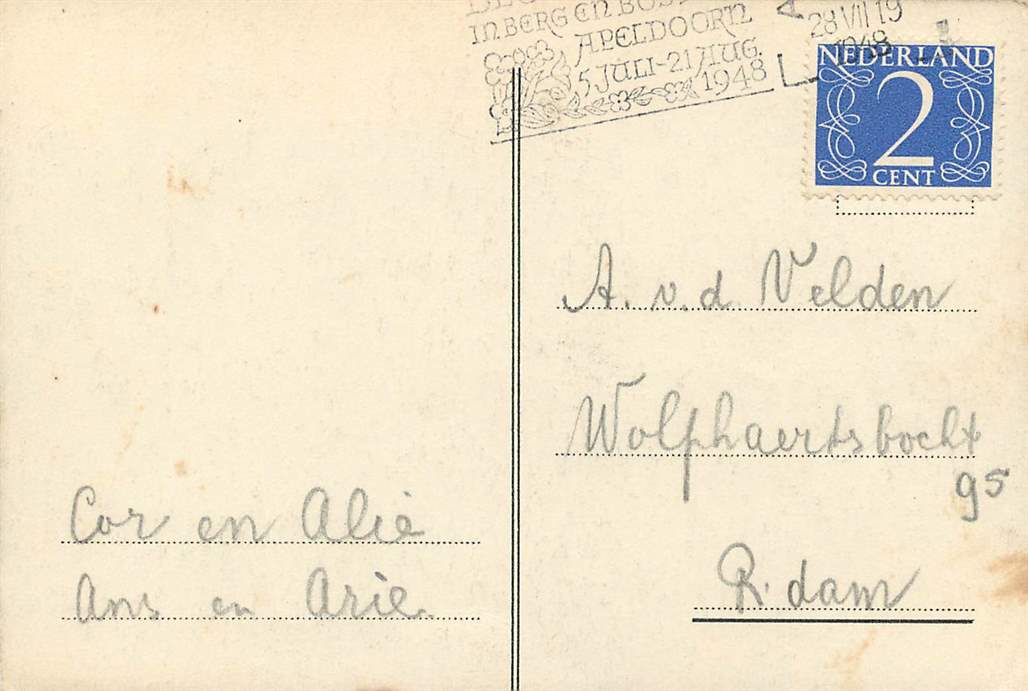 IN BERG EN BOS
APELDOORN
5 JULI-21 AUG.
1948
28 VII 19
1948
NEDERLAND
2
CENT
A. v. d Velden
Wolphaertsbocht
95
R. dam
Cor en Alie
Ans en Arie.